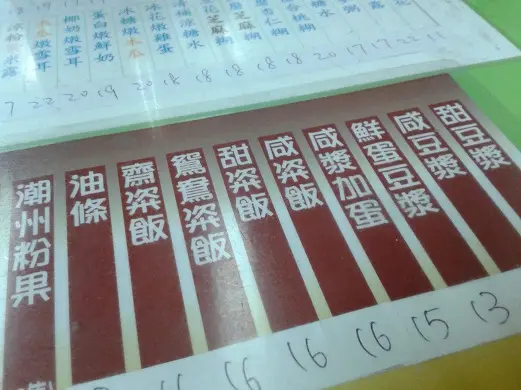 杏仁糊
芝麻糊
冰花燉雞蛋
冰糖燉木瓜
蛋白燉鮮奶
椰奶燉雪耳
木瓜燉雪耳
7 22 20 19 20 18 18 18 18
17 17 22 11
甜豆漿
咸豆漿
鮮蛋豆漿
咸漿加蛋
咸粢飯
甜粢飯
鴛鴦粢飯
齋粢飯
油條
潮州粉果
16 16 16 16 15 13